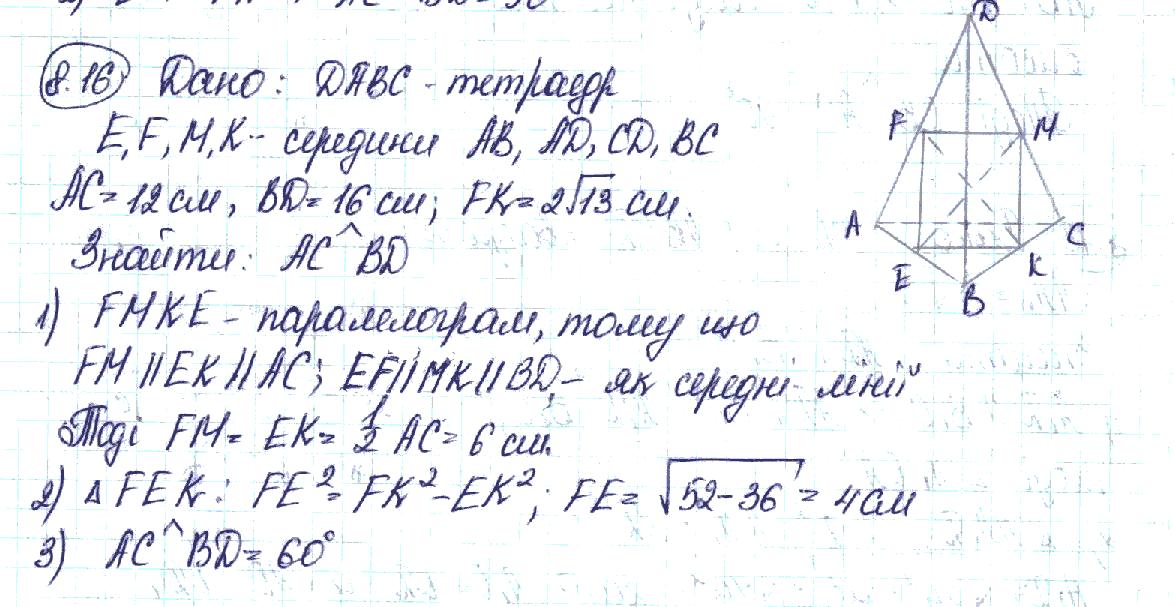 8.16 Дано: DABC - тетраедр
E, F, M, K - середини AB, AD, CD, BC
AC = 12 см, BD = 16 см; FK = 2√13 см.
Знайти: AC ^ BD
1) FMKE - паралелограм, тому що
FM || EK || AC; EF || MK || BD, - як середні лінії
Тоді FM = EK = 1/2 AC = 6 см.
2) △ FEK: FE² = FK² - EK²; FE = √52-36 = 4 см
3) AC ^ BD = 60°
D
F
M
A
C
E
K
B